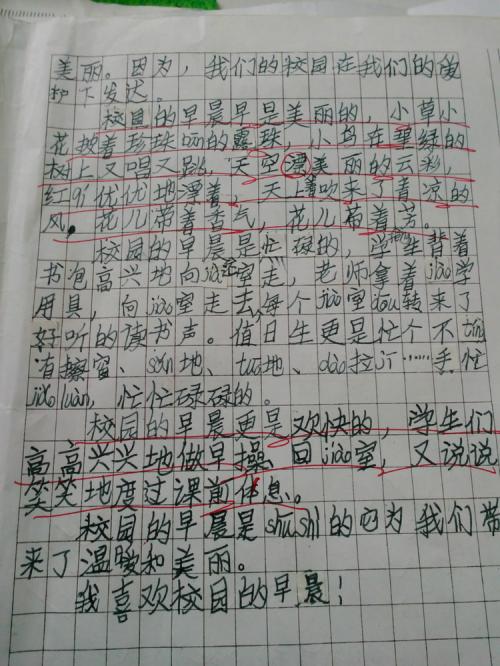 美丽。因为，我们的校园在我们的爱
护下发达。
校园的早晨早是美丽的，小草小
花披着珍珠的露珠，小鸟在翠绿的
树上又唱又跳，天空漂美丽的云彩，
红优优地漂着，天上吹来了青凉的
风。花儿带着香气，花儿带着芝。
校园的早晨是忙碌的，学生背着
书包高兴地向jiào室走，老师拿着jiào学
用具，向jiào室走去，每个jiào室dōu转来了
好听的读书声。值日生更是忙个不
有擦窗、sǎo地、tuō地、dào拉……手忙
jiǎo luàn，忙忙碌碌的。
校园的早晨更是欢快的，学生们
高高兴兴地做早操，回jiào室，又说说
笑笑地度过课前休息、。
校园的早晨是shū shì的它为我们带
来了温暖和美丽。
我喜欢校园的早晨！